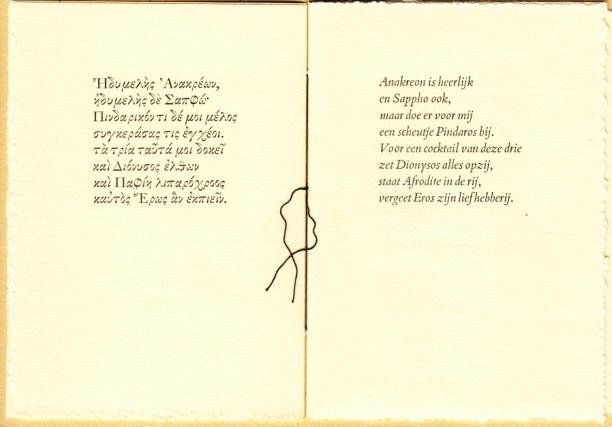 Ἡδυμελὴς Ἀνακρέων,
ἡδυμελὴς δὲ Σαπφώ·
Πινδαρικόν τι δέ μοι μέλος
συγκεράσας τις ἐγχέοι.
τὰ τρία ταῦτά μοι δοκεῖ
καὶ Διόνυσος ἐλθὼν
καὶ Παφίη λιπαρόχροος
καὐτὸς Ἔρως ἂν ἐκπιεῖν.
Anakreon is heerlijk
en Sappho ook,
maar doe er voor mij
een scheutje Pindaros bij.
Voor een cocktail van deze drie
zet Dionysos alles opzij,
staat Afrodite in de rij,
vergeet Eros zijn liefhebberij.